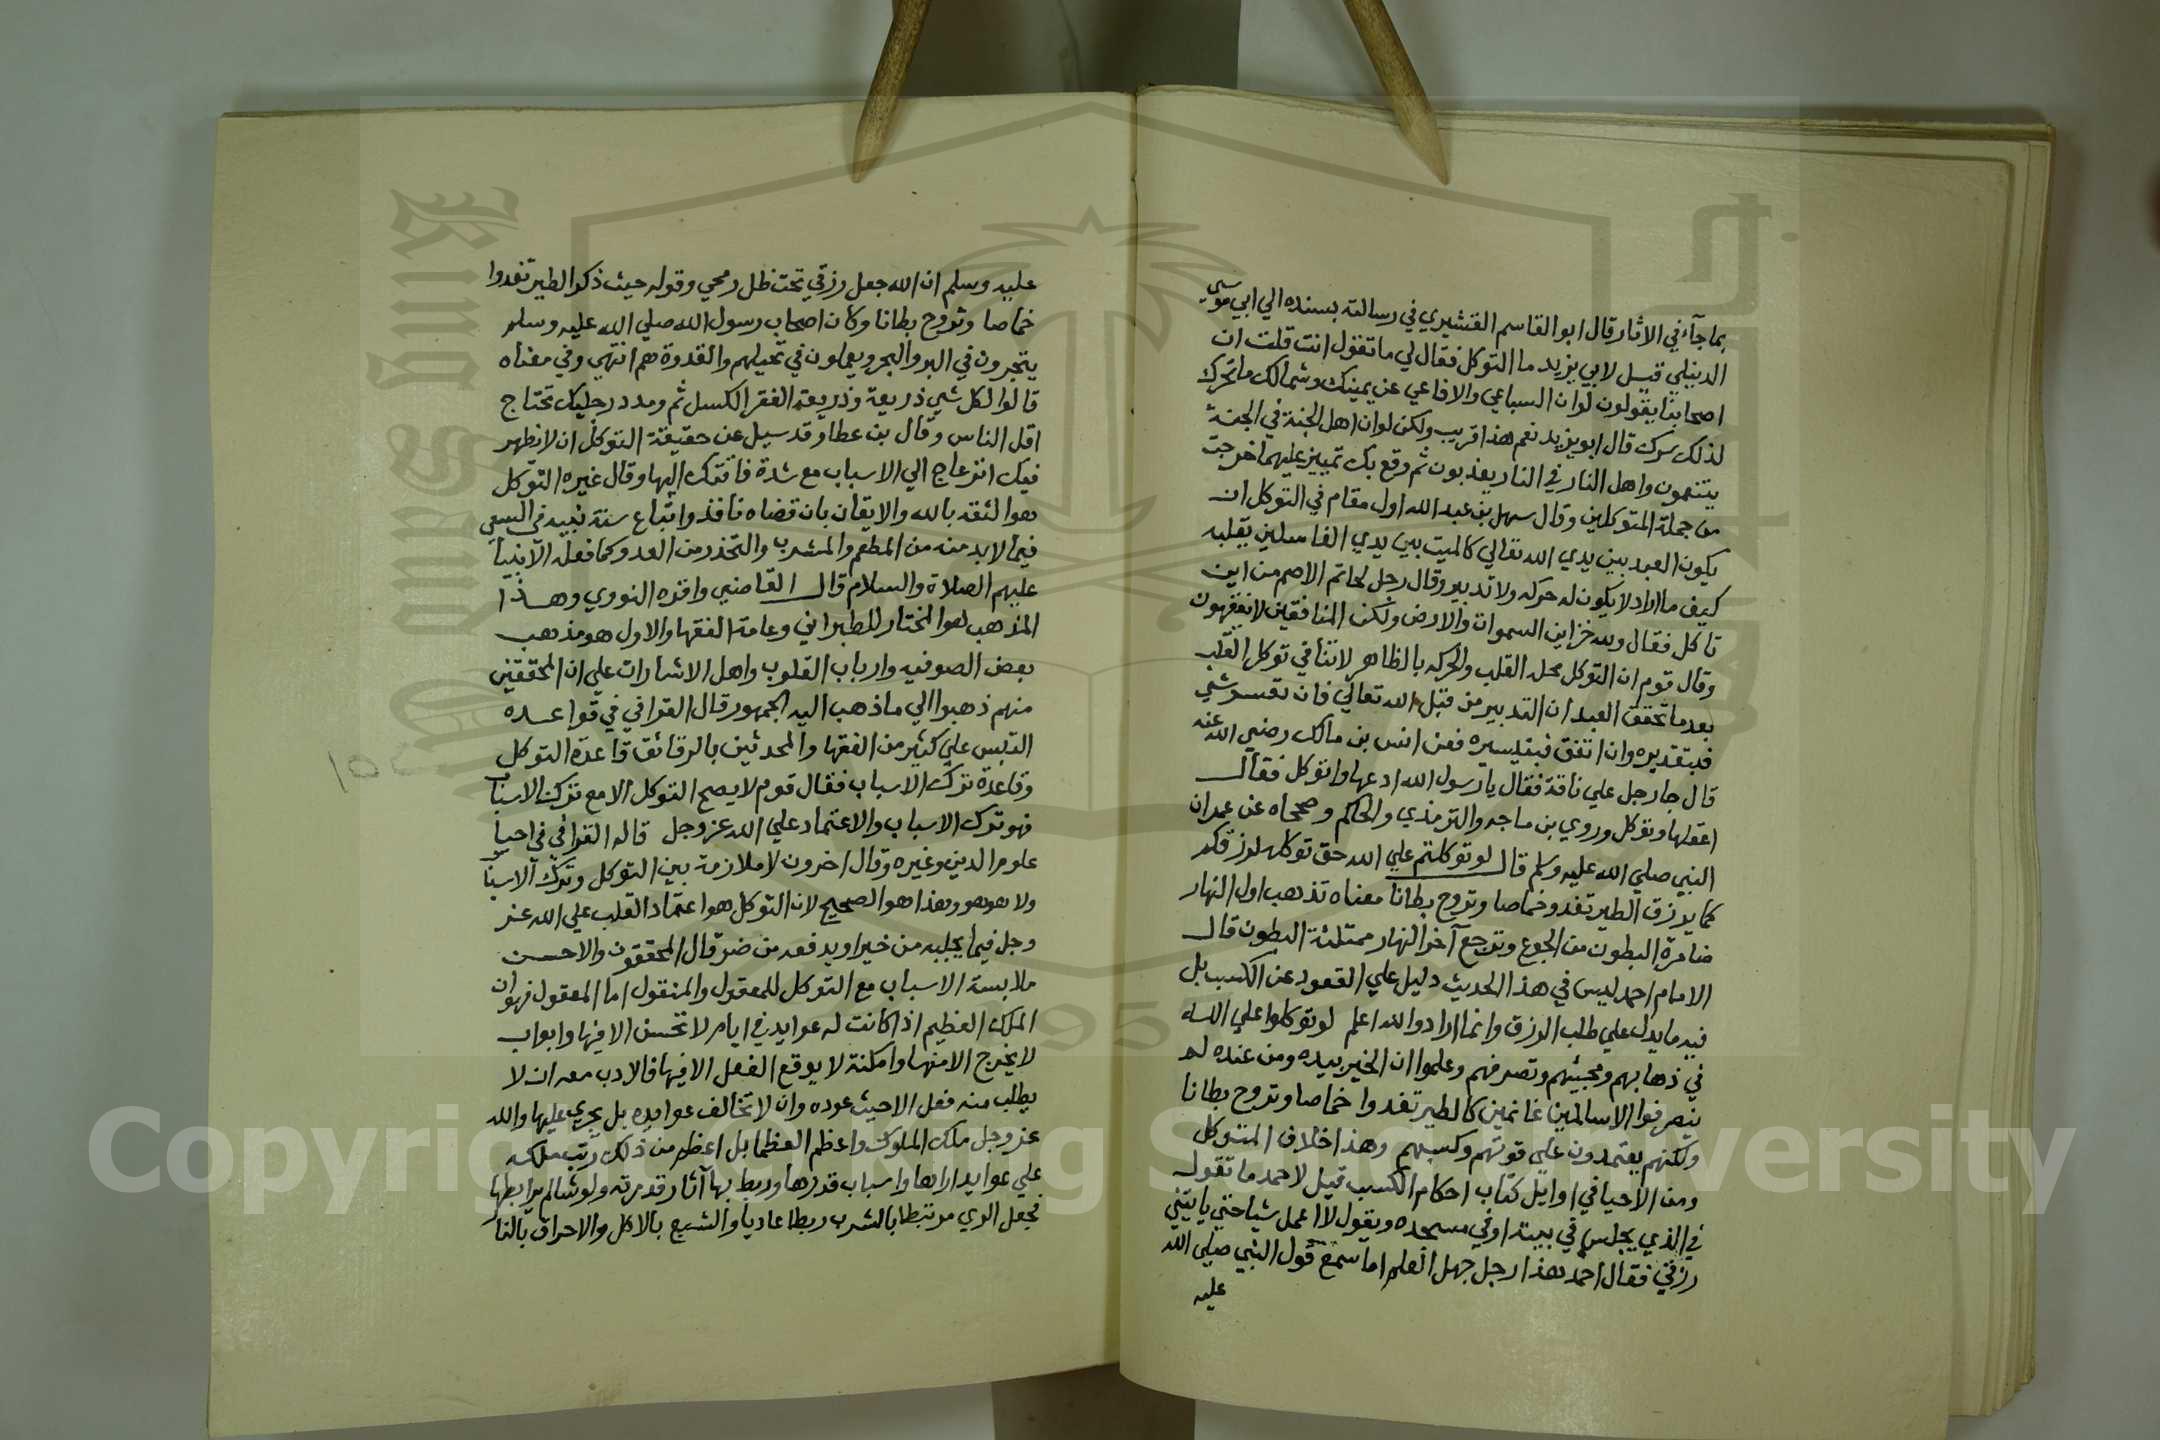 بما جآء في الاثار قال ابو القاسم القشيري في رسالته بسنده الي ابي موسي
الديبلي قيل لابي يزيد ما التوكل فقال لي ما تقول انت قلت ان
اصحابنا يقولون لو ان السباع والافاعي عن يمينك وشمالك ما تحرك
لذلك سرك قال ابو يزيد نعم هذا قريب ولكن لو ان اهل الجنة في الجنة
يتنعمون واهل النار في النار يعذبون ثم وقع بك تمييز عليهما خرجت
من جملة المتوكلين وقال سهل بن عبد الله اول مقام في التوكل ان
يكون العبد بين يدي الله تعالي كالميت بين يدي الغاسلين يقلبه
كيف ما اراد لا يكون له حركه ولا تدبير وقال رجل لحاتم الاصم من اين
تاكل فقال ولله خزاين السموات والارض ولكن المنافقين لا يفقهون
وقال قوم ان التوكل محله القلب والحركه بالظاهر لا تنافي توكل القلب
بعد ما تحقق العبد ان التدبير من قبل الله تعالي فان تعسر شي
فبتقديره وان اتفق فبتيسيره فعن انس بن مالك رضي الله عنه
قال جا رجل علي ناقة فقال يا رسول الله ادعها واتوكل فقال
اعقلها وتوكل وروي بن ماجه والترمذي والحاكم وصححاه عن عمر ان
النبي صلي الله عليه وسلم قال لو توكلتم علي الله حق توكله لرزقكم
كما يرزق الطير تغدو خماصا وتروح بطانا معناه تذهب اول النهار
ضامرة البطون من الجوع وترجع آخر النهار ممتلئة البطون قال
الامام احمد ليس في هذا الحديث دليل علي القعود عن الكسب بل
فيه ما يدل علي طلب الرزق وانما اراد والله اعلم لو توكلوا علي الله
في ذهابهم ومجيئهم وتصرفهم وعلموا ان الخير بيده ومن عنده لم
ينصرفوا الا سالمين غانمين كالطير تغدوا خماصا وتروح بطانا
ولكنهم يعتمدون علي قوتهم وكسبهم وهذا خلاف المتوكل
ومن الاحيا في اوايل كتاب احكام الكسب قيل لاحمد ما تقول
في الذي يجلس في بيته او في مسجده ويقول لا اعمل شيا حتي ياتيني
رزقي فقال احمد هذا رجل جهل العلم اما سمع قول النبي صلي الله
عليه
عليه وسلم ان الله جعل رزقي تحت ظل رمحي وقوله حيث ذكر الطير تغدوا
خماصا وتروح بطانا وكان اصحاب رسول الله صلي الله عليه وسلم
يتجرون في البر والبحر ويعملون في نخيلهم والقدوة هم انتهي وفي معناه
قالوا لكل شي ذريعة وذريعة الفقر الكسل ثم ومدد رجليك تحتاج
اقل الناس وقال بن عطا وقد سيل عن حقيقة التوكل ان لا يظهر
فيك انزعاج الي الاسباب مع شدة فاقتك اليها وقال غيره التوكل
هو الثقه بالله والايقان بان قضاه نافذ واتباع سنة نبيه في السعي
فيما لا بد منه من المطعم والمشرب والتحذر من العدو كما فعله الانبيا
عليهم الصلاة والسلام قال القاضي واقره النووي وهذا
المذهب هو المختار للطبراني وعامة الفقها والاول هو مذهب
بعض الصوفيه وارباب القلوب واهل الاشارات علي ان المحققين
منهم ذهبوا الي ما ذهب اليه الجمهور قال القرافي في قواعده
التبس علي كثير من الفقها والمحدثين بالرقائق قاعدة التوكل
وقاعدة ترك الاسباب فقال قوم لا يصح التوكل الا مع ترك الاسباب
فهو ترك الاسباب والاعتماد علي الله عز وجل قاله القرافي في احيا
علوم الدين وغيره وقال اخرون لا ملازمة بين التوكل وترك الاسباب
ولا هو هو وهذا هو الصحيح لان التوكل هو اعتماد القلب علي الله عز
وجل فيما يجلبه من خير او يدفعه من ضر قال المحققون والاحسن
ملابسة الاسباب مع التوكل للمعقول والمنقول اما المعقول فهو ان
الملك العظيم اذا كانت له عوايد في ايام لا تحسن الا فيها وابواب
لا يخرج الا منها وامكنة لا يوقع الفعل الا فيها فالادب معه ان لا
يطلب منه فعل الا حيث عوده وان لا تخالف عوايده بل يجري عليها والله
عز وجل ملك الملوك واعظم العظما بل اعظم من ذلك رتب ملكه
علي عوايد ارادها واسباب قدرها وربط بها آثار قدرته ولو شا لم يربطها
فجعل الري مرتبطا بالشرب ربطا عاديا والشبع بالاكل والاحراق بالنا
Copyright © King Saud University
1957